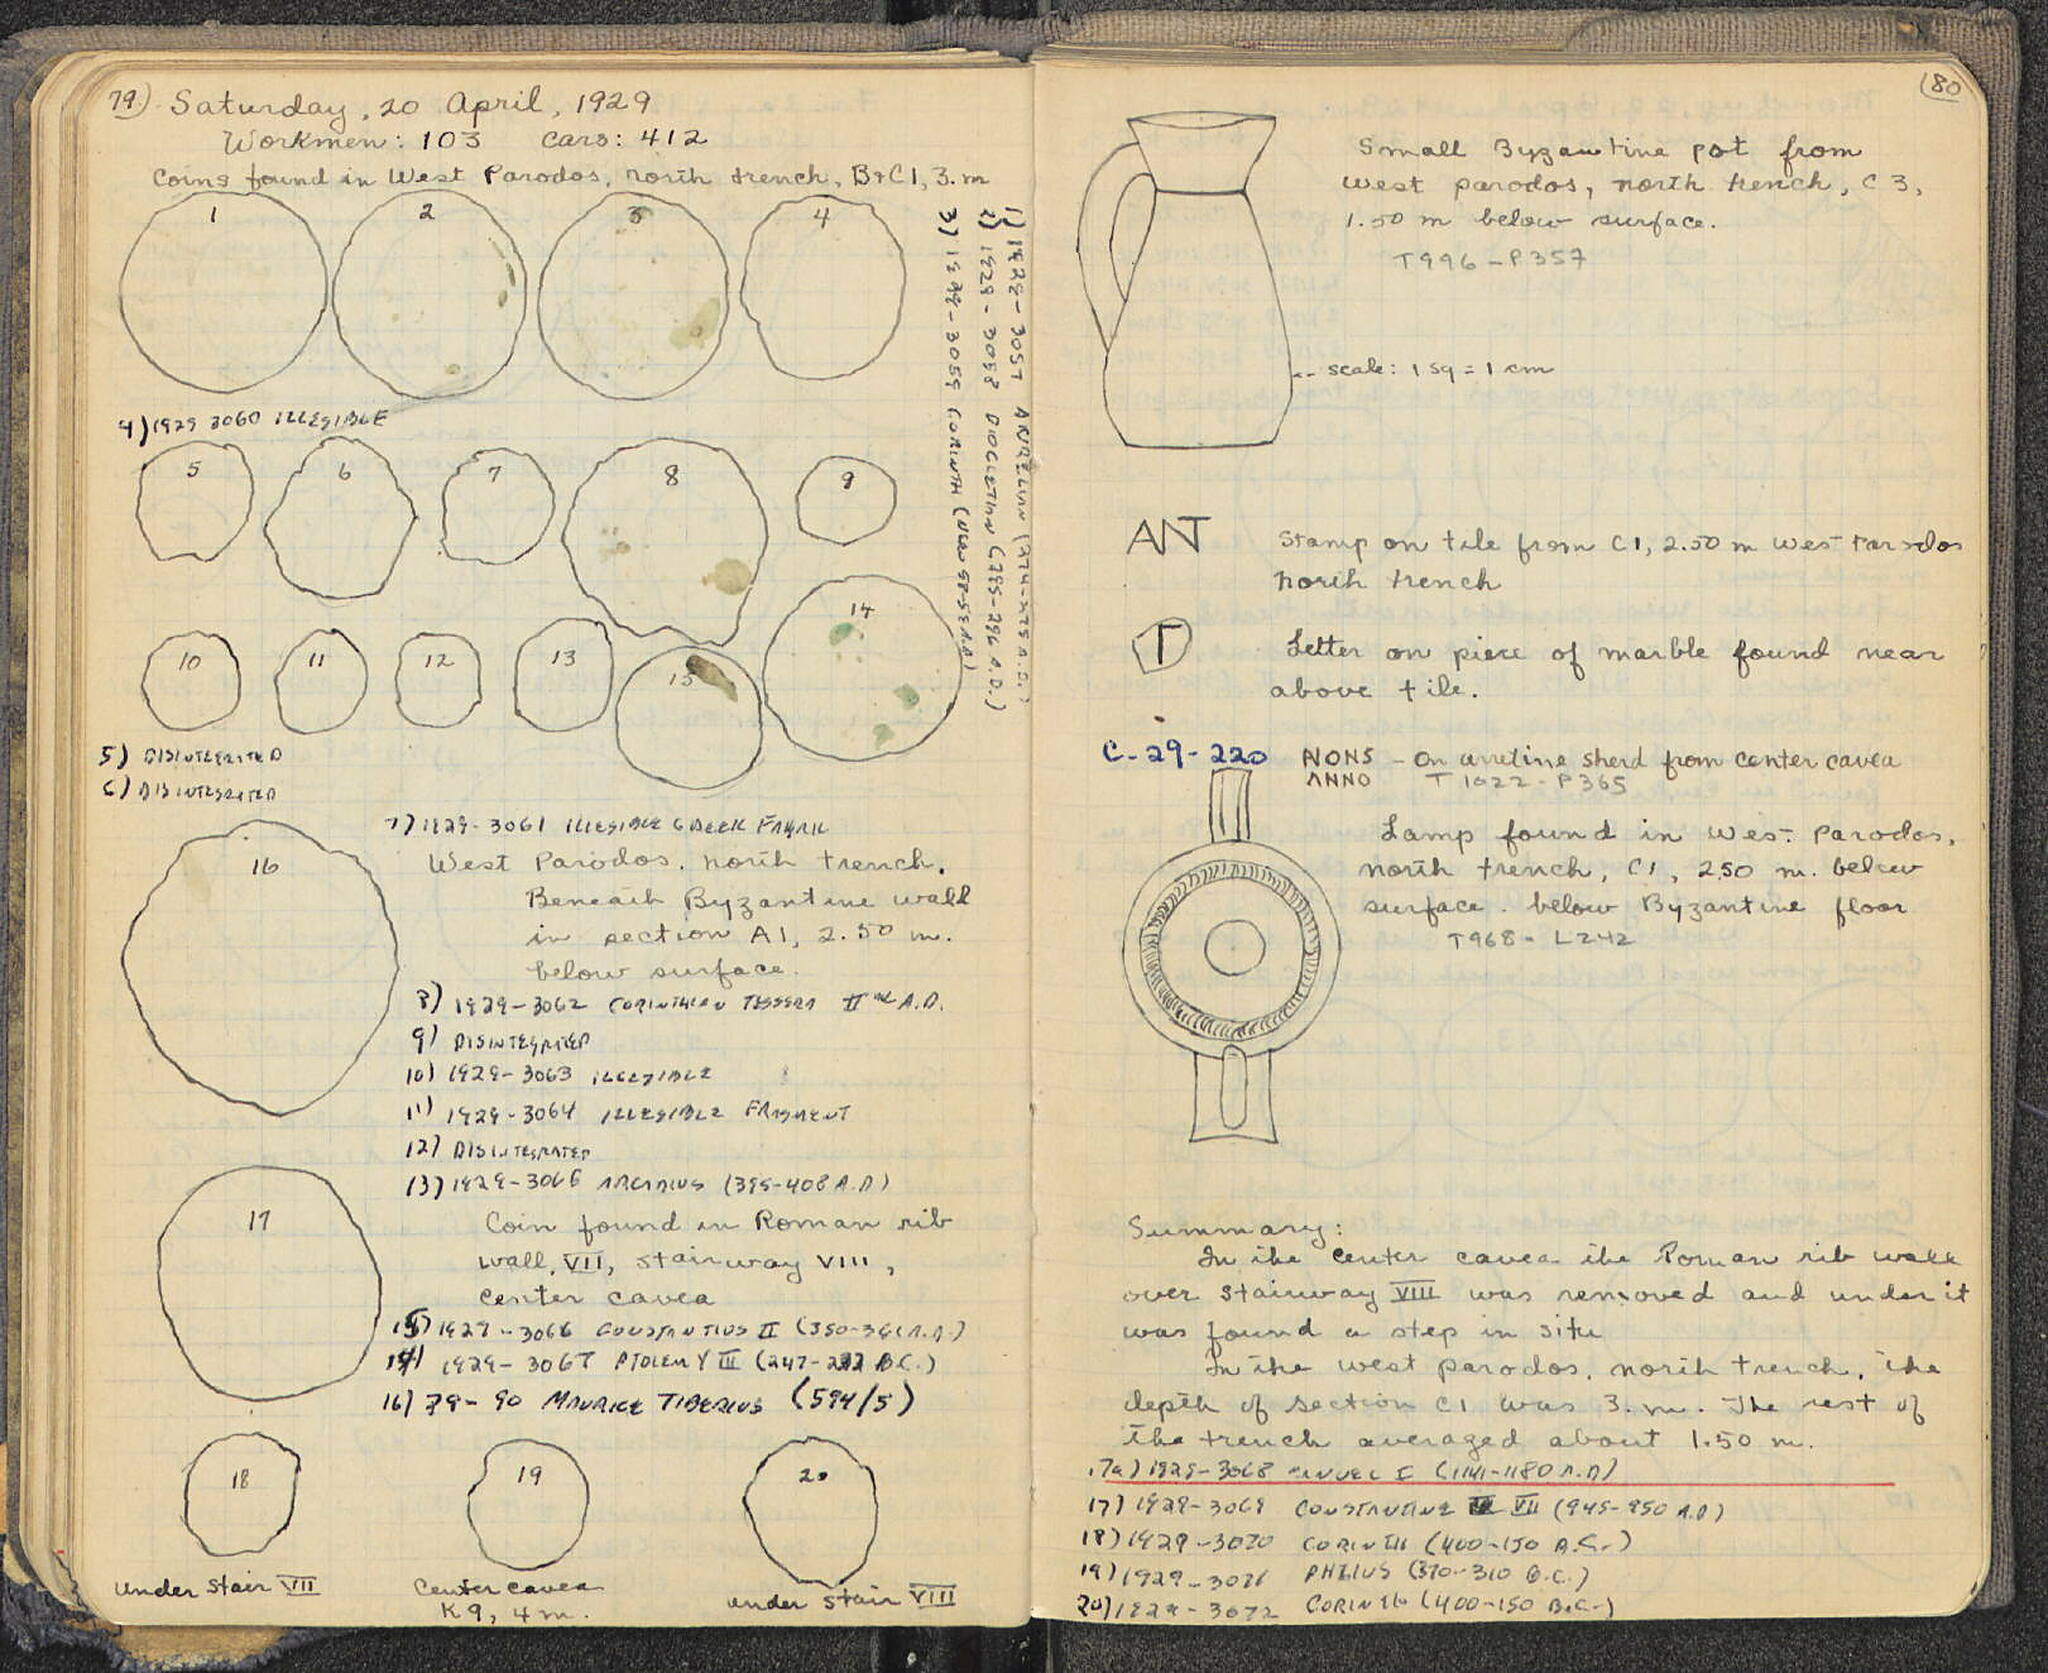 79.) Saturday, 20 April, 1929
Workmen: 103 Cars: 412
Coins found in West Parodos, north trench, B+C1, 3. m
1 2 3 4
1) 1929-3057 AURELIAN (274-275 A.D.)
2) 1929-3058 DIOCLETIAN (295-296 A.D.)
3) 1929-3059 CORINTH
4) 1929 3060 ILLEGIBLE
5 6 7 8 9
10 11 12 13 15 14
5) DISINTEGRATED
6) DISINTEGRATED
16
7) 1929-3061 ILLEGIBLE GREEK
West Parodos. north trench.
Beneath Byzantine wall
in section A1, 2.50 m.
below surface.
8) 1929-3062 CORINTHIAN TESSERA IInd A.D.
9) DISINTEGRATED
10) 1929-3063 ILLEGIBLE
11) 1929-3064 ILLEGIBLE FRAGMENT
12) DISINTEGRATED
13) 1929-3065 ARCADIUS (395-408 A.D)
17
Coin found in Roman rib
wall, VII, stairway VIII,
center cavea
15) 1929-3066 CONSTANTIUS II (350-361 A.D.)
14) 1929-3067 PTOLEMY III (247-222 B.C.)
16) 29-90 MAURICE TIBERIUS (594/5)
18 19 20
under stair VII
Center cavea
K9, 4 m.
under stair VIII
80
Small Byzantine pot from
west parodos, north trench, C3,
1.50 m below surface.
T996-P357
scale: 1 sq = 1 cm
ANT Stamp on tile from C1, 2.50 m West Parodos
north trench
T Letter on piece of marble found near
above tile.
C-29-220 NONS - On arretine sherd from center cavea
ANNO T1022-P365
Lamp found in West Parodos,
north trench, C1, 2.50 m. below
surface. below Byzantine floor
T968-L242
Summary:
In the center cavea the Roman rib wall
over stairway VIII was removed and under it
was found a step in situ
In the west parodos, north trench, the
depth of section C1 was 3. m. The rest of
the trench averaged about 1.50 m.
17a) 1929-3068 MANUEL I (1141-1180 A.D)
17) 1929-3069 CONSTANTINE VII (945-950 A.D)
18) 1929-3070 CORINTH (400-150 B.C.)
19) 1929-3071 PHLIUS (370-310 B.C.)
20) 1929-3072 CORINTH (400-150 B.C.)